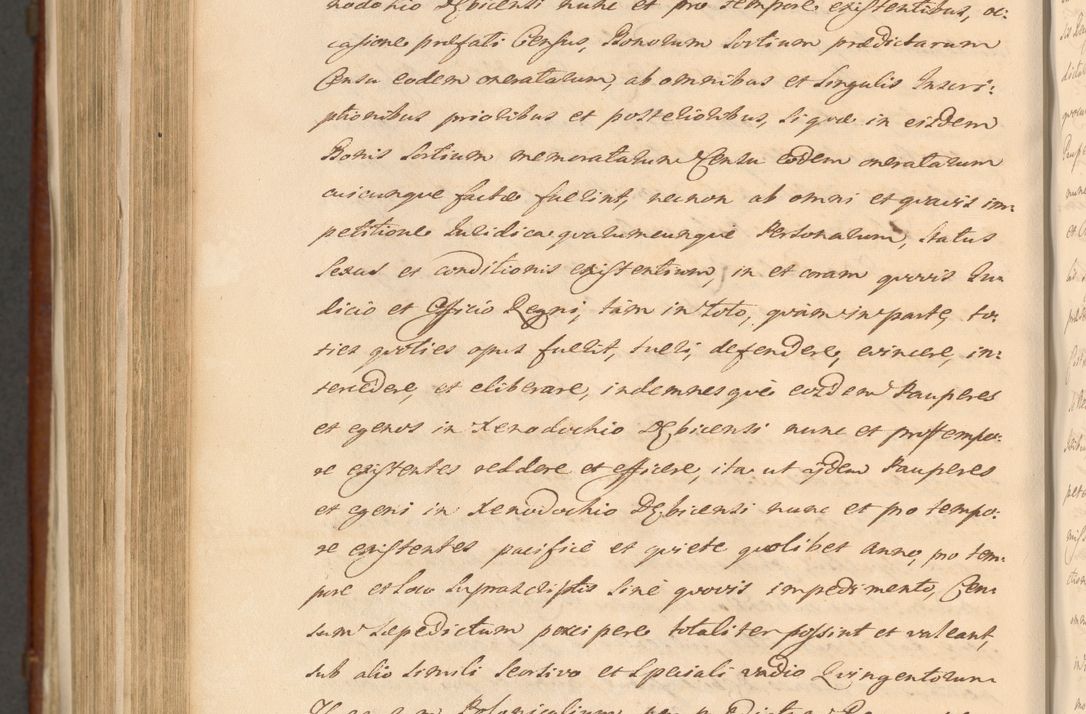 nodochio Dębicensi nunc et pro tempore existentibus, oc:
casione præfati Census, Bonorum Sortium prædictarum
Censu eodem oneratarum, ab omnibus et Singulis Inscri:
ptionibus prioribus et posterioribus, Si quæ in eisdem
Bonis Sortium memoratarum Censu eodem oneratarum
cuicunque factæ fuerint, necnon ab omni et quavis im:
petitione Iuridica quarumcunque Personarum, Status
Sexus et conditionis existentium, in et coram quovis Iu:
dicio et Officio Regni, tàm in toto, quàm in parte, to:
ties quoties opus fuerit, tueri, defendere, evincere, in:
tercedere, et eliberare, indemnesquè eosdem Pauperes
et egenos in Xenodochio Dębicensi nunc et pro tempo:
re existentes reddere et efficere, ita ut ijdem Pauperes
et egeni in Xenodochio Dębicensi nunc et pro tempo:
re existentes pacificè et quietè quolibet Anno, pro tem:
pore et loco Suprascriptis Sinè quovis impedimento, Cen:
sum Sæpedictum percipere totaliter possint et valeant,
sub alio Simili Seorsivo et Speciali vadio Quingentorum